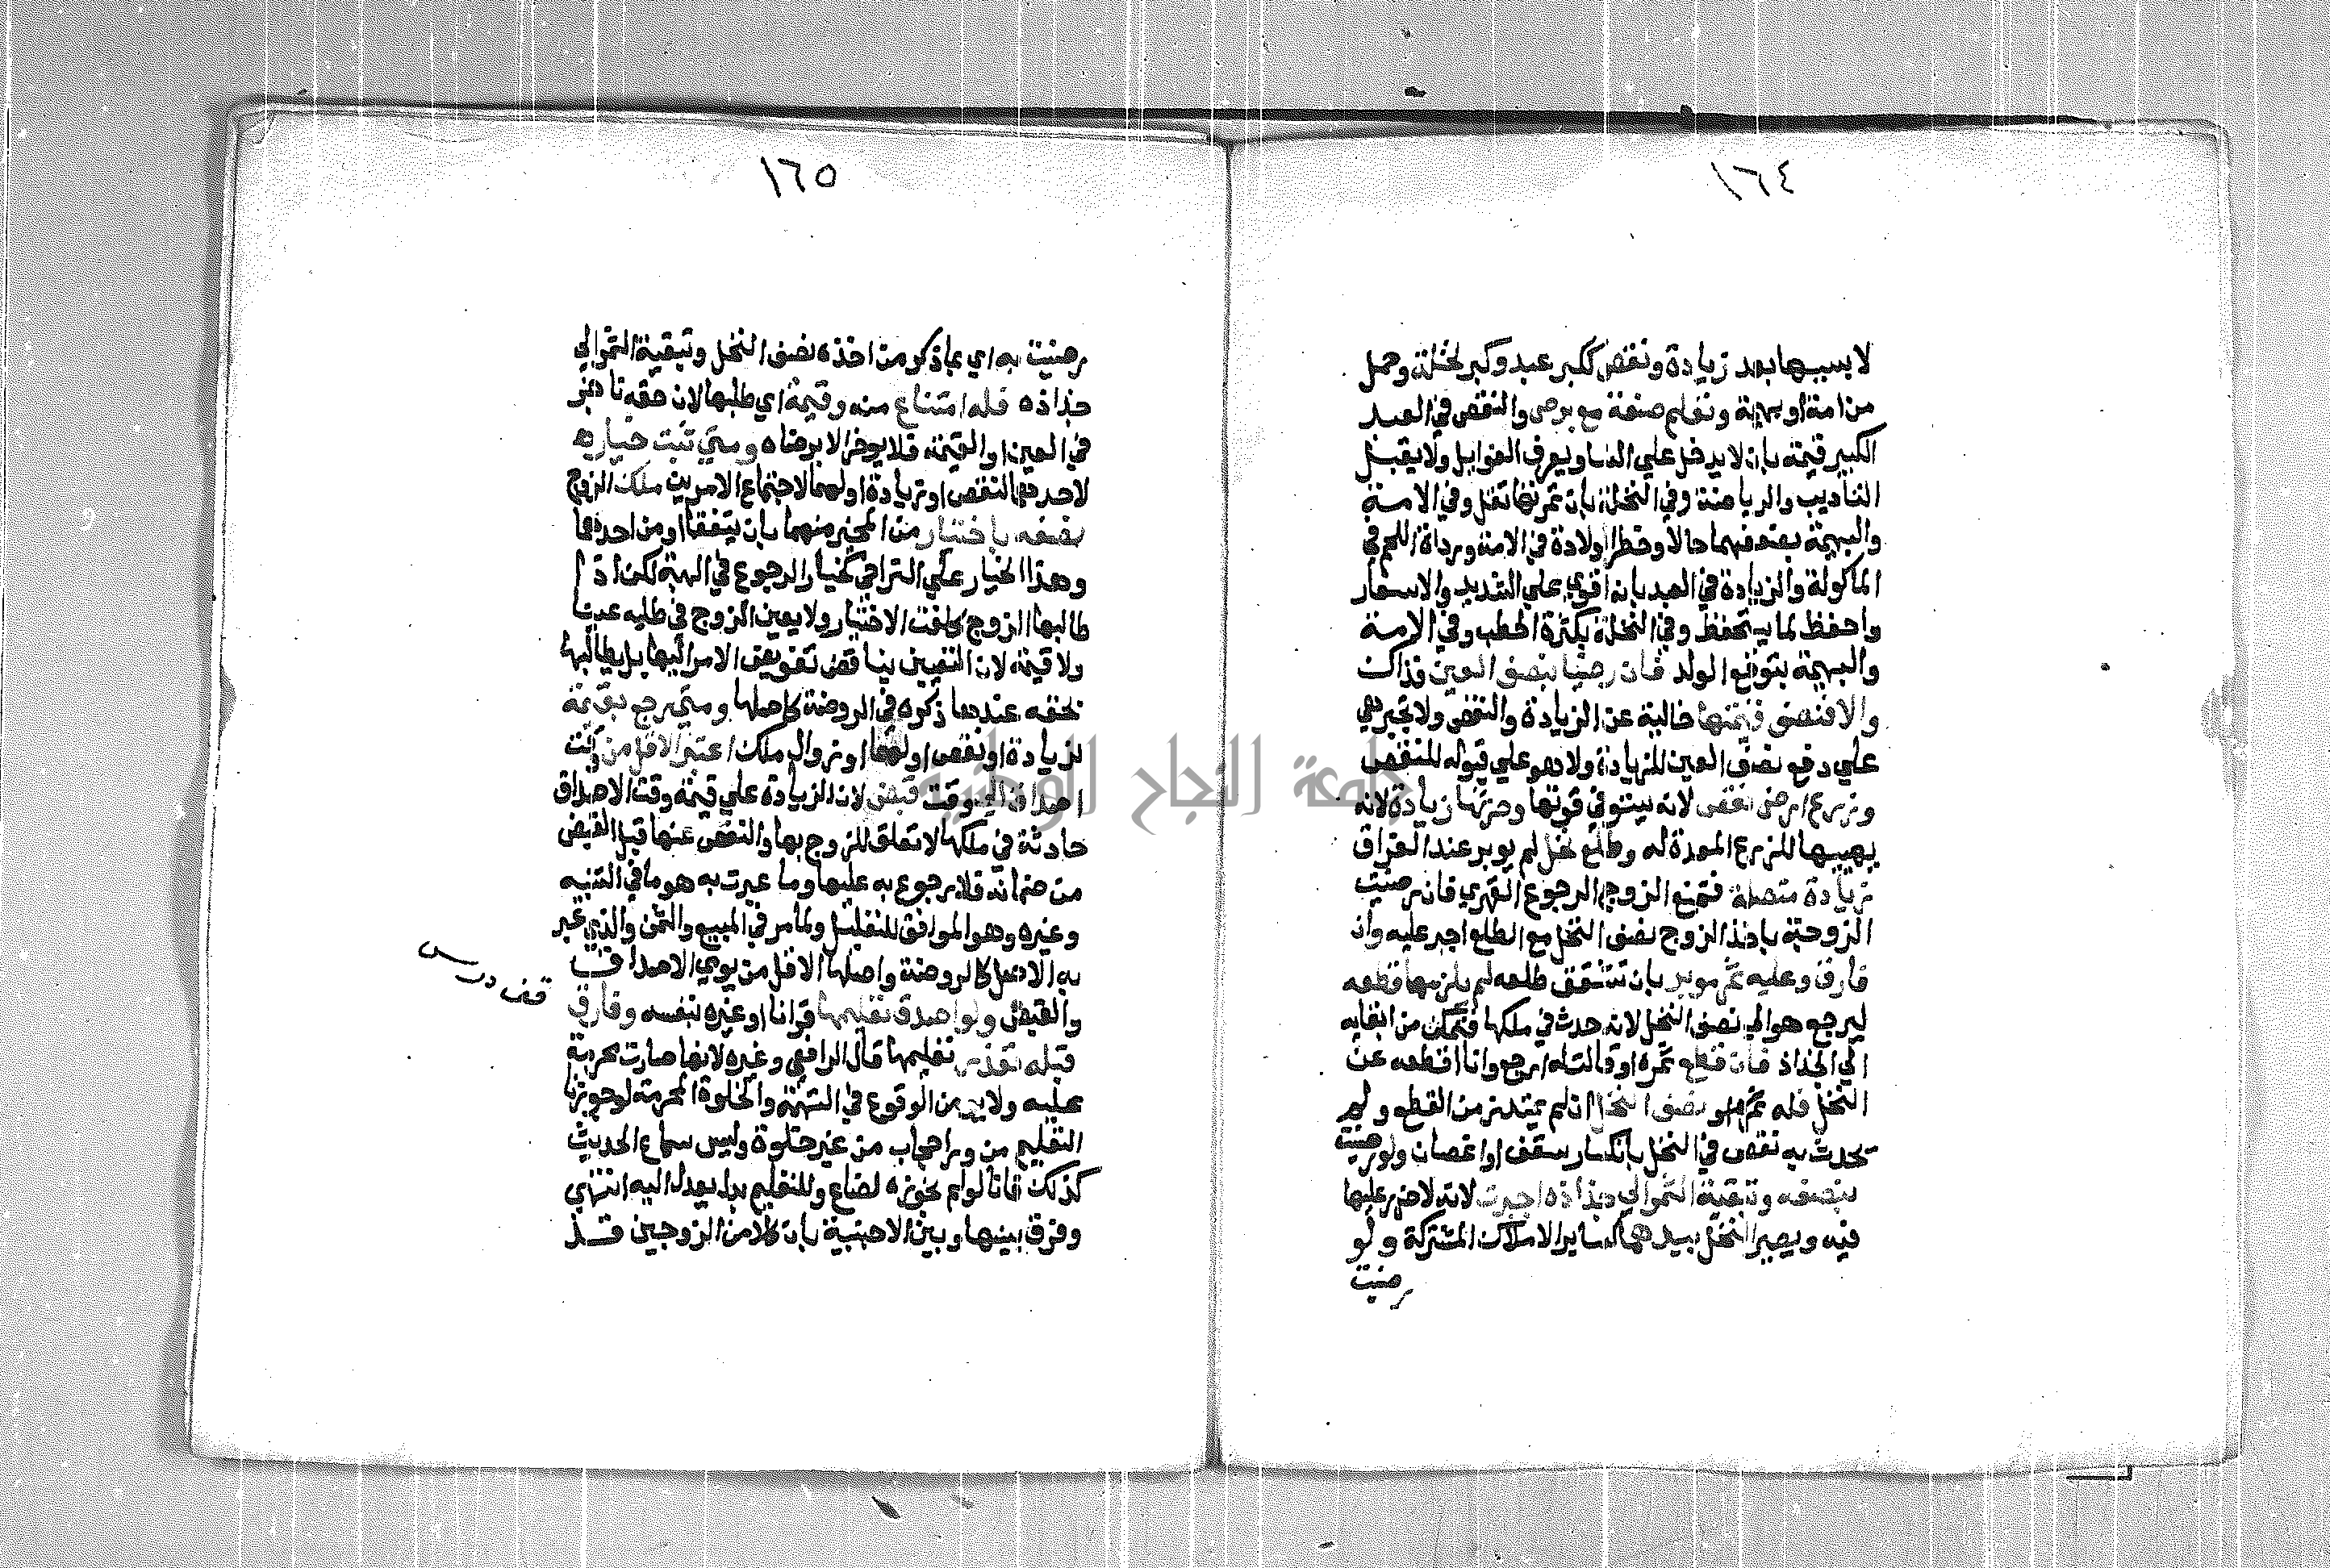 ١٦٤
لا بسببها بعد زيادة ونقص ككبر عبد وكبر نخلة وحمل
من امة او بهيمة وتعلم صنعة مع برص والنقص في العبد
الكبير قيمة بان لا يدخل علي النسا ويعرف الغوايل ولا يقبل
التاديب والرياضة وفي النخلة بان ثمرتها تقل وفي الامة
والبهيمة بضعفهما حالا وخطر الولادة في الامة ورداة اللحم في
الماكولة والزيادة في العبد بانه اقوي علي الشدايد والاسفار
واحفظ لما يستحفظ وفي النخلة بكثرة الحطب وفي الامة
والبهيمة بتوقع الولد فان رضيا بنصف العين فذاك
والا فنصف قيمتها خالية عن الزيادة والنقص ولا تجبر هي
علي دفع نصف العين للزيادة ولا هو علي قبوله للنقص
وزرع ارض نقص لانه يستوفي قوتها وحرثها زيادة لانه
يهيبها للزرع المعدة له وطلع نخل لم يوبر عند الفراق
زيادة متصلة فتمنع الزوج الرجوع القهري فان رضيت
الزوجة باخذ الزوج نصف النخل مع الطلع اجبر عليه وان
فارق وعليه ثمر موبر بان تشقق طلعه لم يلزمها قطعه
ليرجع هو الي نصف النخل لانه حدث في ملكها فتمكن من ابقايه
الي الجذاذ فان قطع ثمره او قالت له ارجع وانا اقطعه عن
النخل فله نصف النخل ان لم يمتد زمن القطع ولم
يحدث به نقص في النخل بانكسار سعف او اغصان ولو رضيت
بنصفه وتبقية الثمر الي جذاذه اجبرت لانه لا ضرر عليها
فيه ويصير النخل بيدهما كساير الاملاك المشتركة ولو
رضيت
١٦٥
رضيت به اي بما ذكر من اخذه نصف النخل وتبقية الثمر الي
جذاذه فله امتناع منه وقيمة اي طلبها لان حقه ناجز
في العين او القيمة فلا يوخر الا برضاه ومتي ثبت خيار
لاحدهما لنقص او زيادة او لهما لاجتماع الامرين ملك الزوج
نصفه باختيار من المخير منهما بان يتفقا او من احدهما
وهذا الخيار علي التراخي كخيار الرجوع في الهبة لكن اذا
طالبها الزوج كلفت الاختيار ولا يعين الزوج في طلبه عينا
ولا قيمة لان التعيين يناقض تفويض الامر اليها بل يطالبها
بحقه عندها ذكره في الروضة كاصلها ومتي رجع بقيمة
لزيادة او نقص او لهما او زوال ملك اعتبر الاقل من وقت
اصداق الي وقت قبض لان الزيادة علي قيمة وقت الاصداق
حادثة في ملكها لا تعلق للزوج بها والنقص عنها قبل القبض
من ضمانه فلا رجوع به عليها وما عبرت به هو ما في التنبيه
وغيره وهو الموافق للتعليل ولما مر في المبيع والثمن والذي عبر
به الاصل كالروضة واصلها الاقل من يومي الاصداق
والقبض ولو اصدق تعليمها قرانا او غيره بنفسه وفارق
قبله تعذر تعليمها قال الرافعي وغيره لانها صارت محرمة
عليه ولا يومن الوقوع في التهمة والخلوة المحرمة لو جوزنا
التعليم من ورا حجاب من غير خلوة وليس سماع الحديث
كذلك فانا لو لم نجوزه لضاع وللتعليم بدل يعدل اليه انتهي
وفرق بينها وبين الاجنبية بان كلا من الزوجين قد
قف درس
جامعة النجاح الوطنية